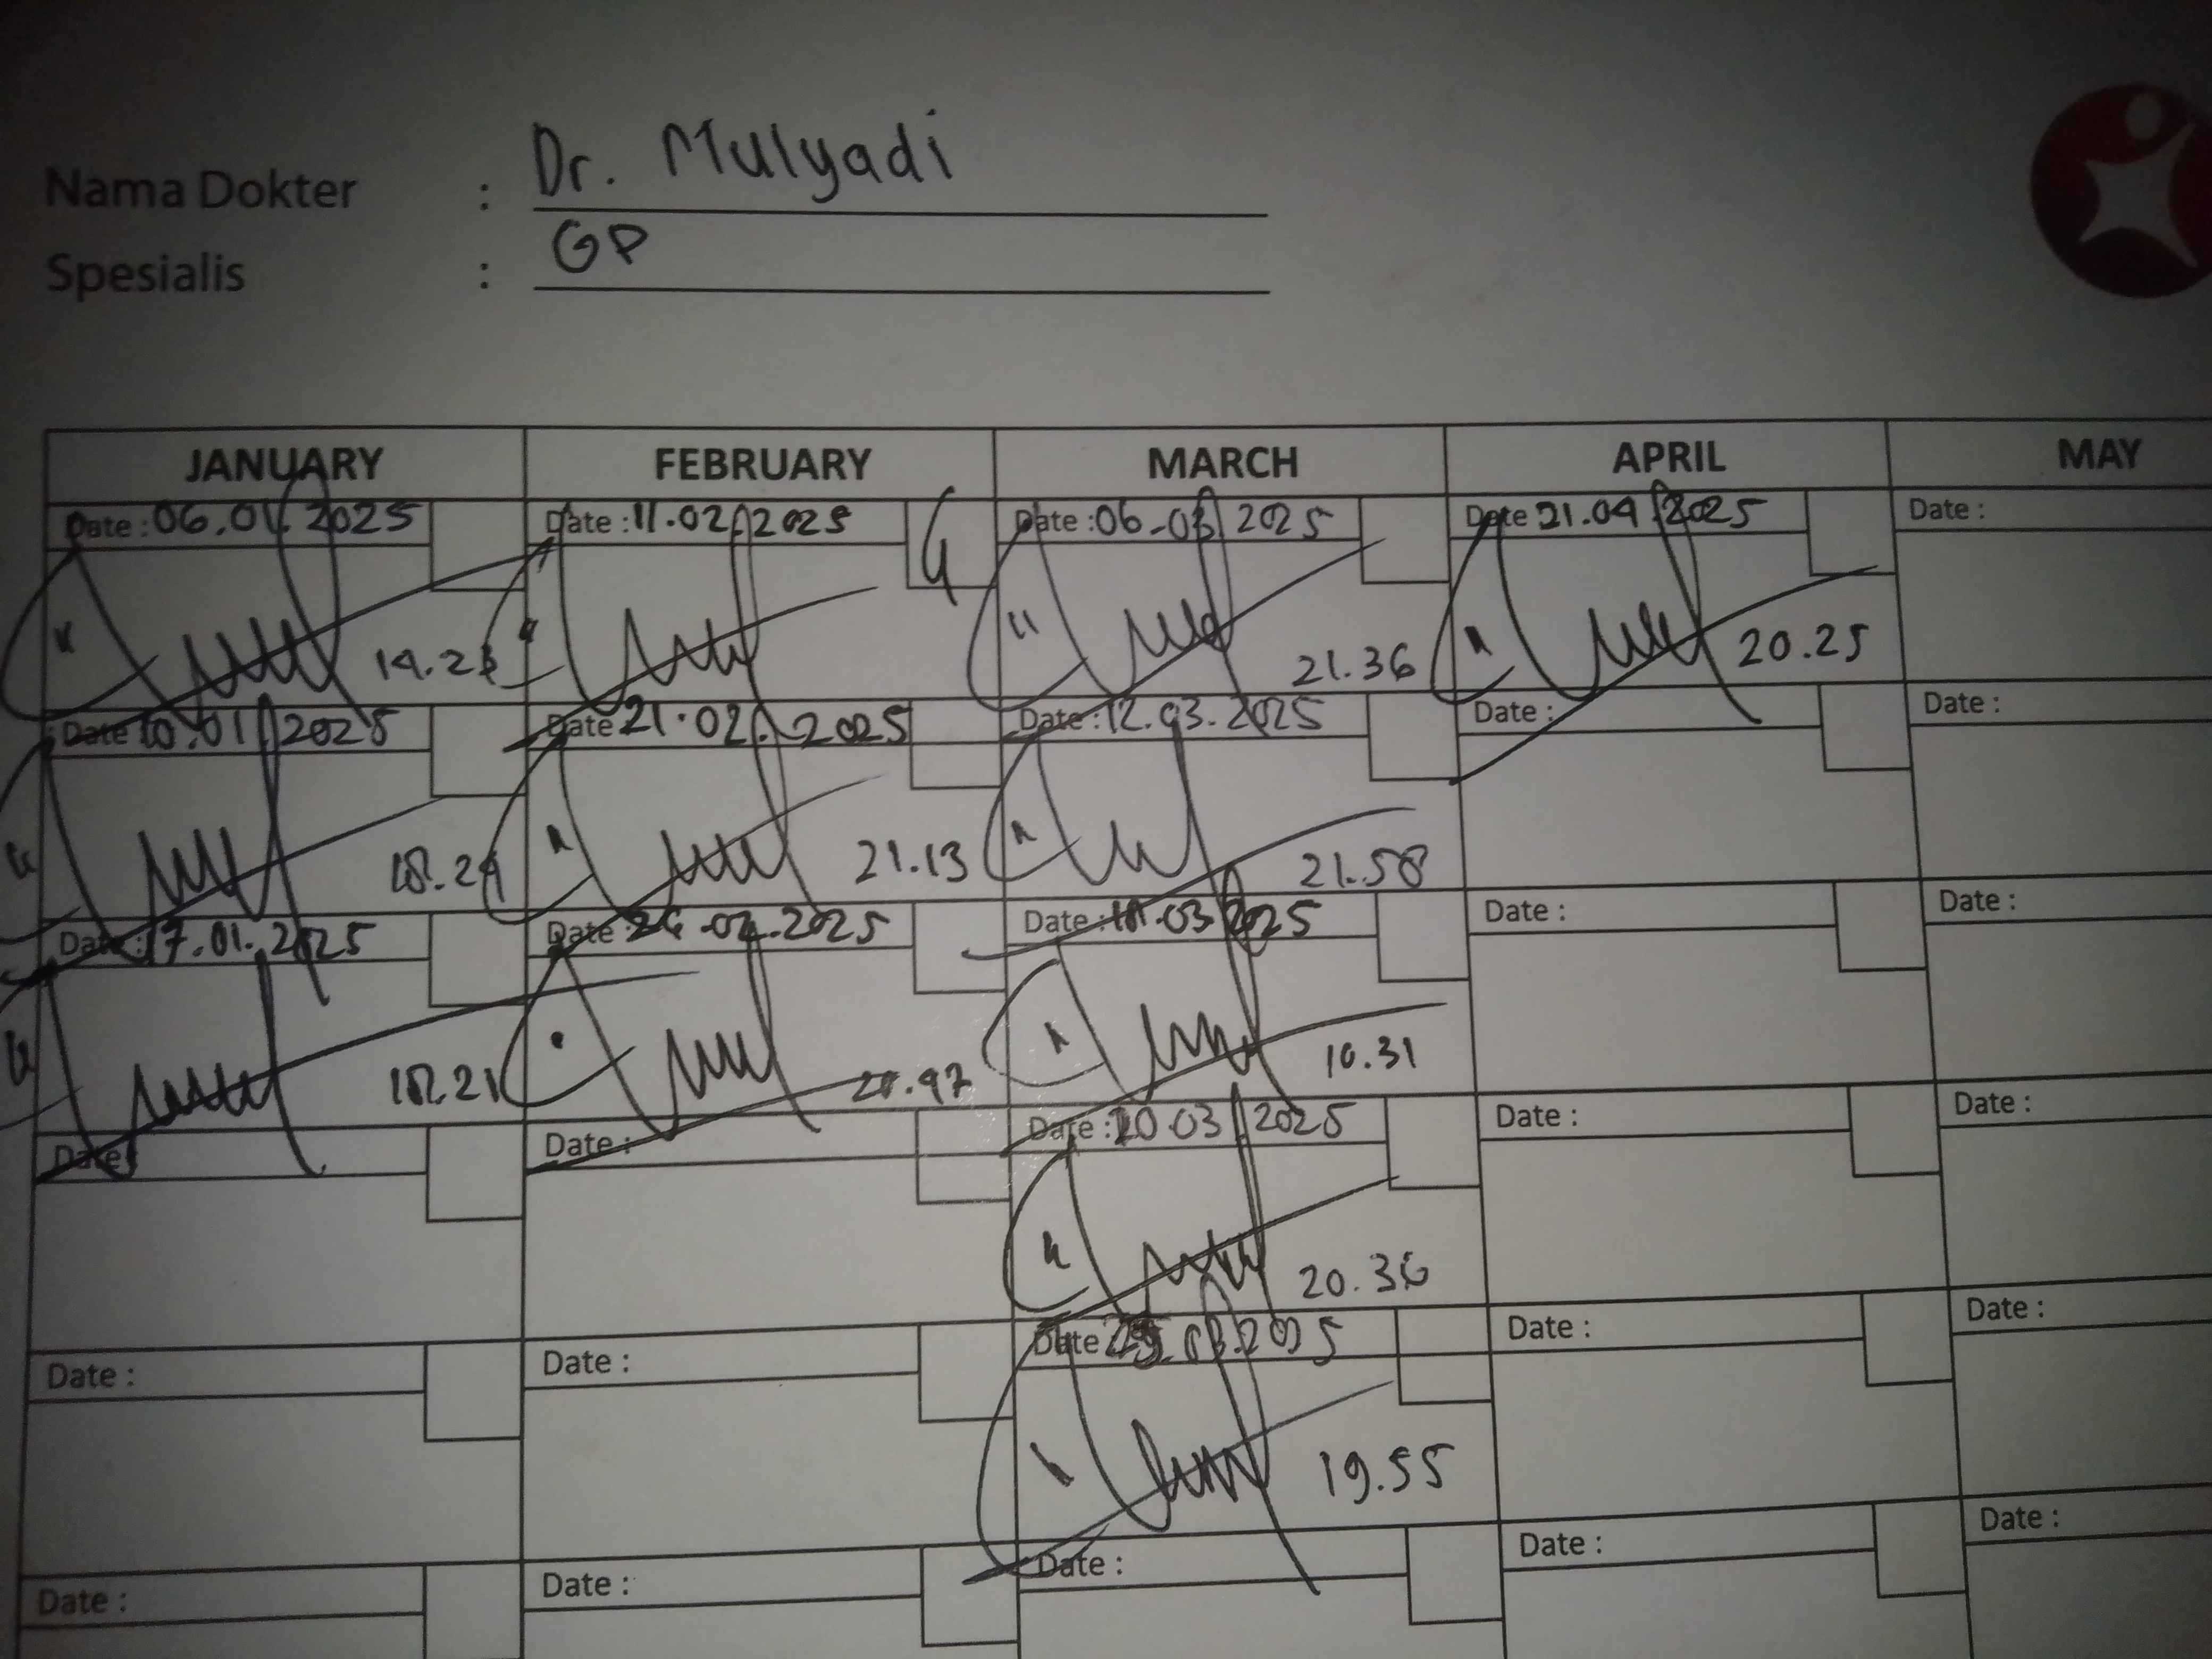 Nama Dokter : Dr. Mulyadi
Spesialis : GP
JANUARY FEBRUARY MARCH APRIL MAY
Date : 06.01.2025 Date : 11.02.2025 Date : 06-03 2025 Date 21.04.2025 Date :
21.36 20.25
Date 10.01.2025 Date 21.02.2025 Date : 12.03.2025 Date : Date :
18.24 21.13 21.58
Date : 17.01.2025 Date .02.2025 Date : .03.2025 Date : Date :
18.21 10.31
Date Date : Date : 20 03 2025 Date : Date :
20.36
Date : Date : Date .03.2025 Date : Date :
19.55
Date : Date : Date : Date : Date :